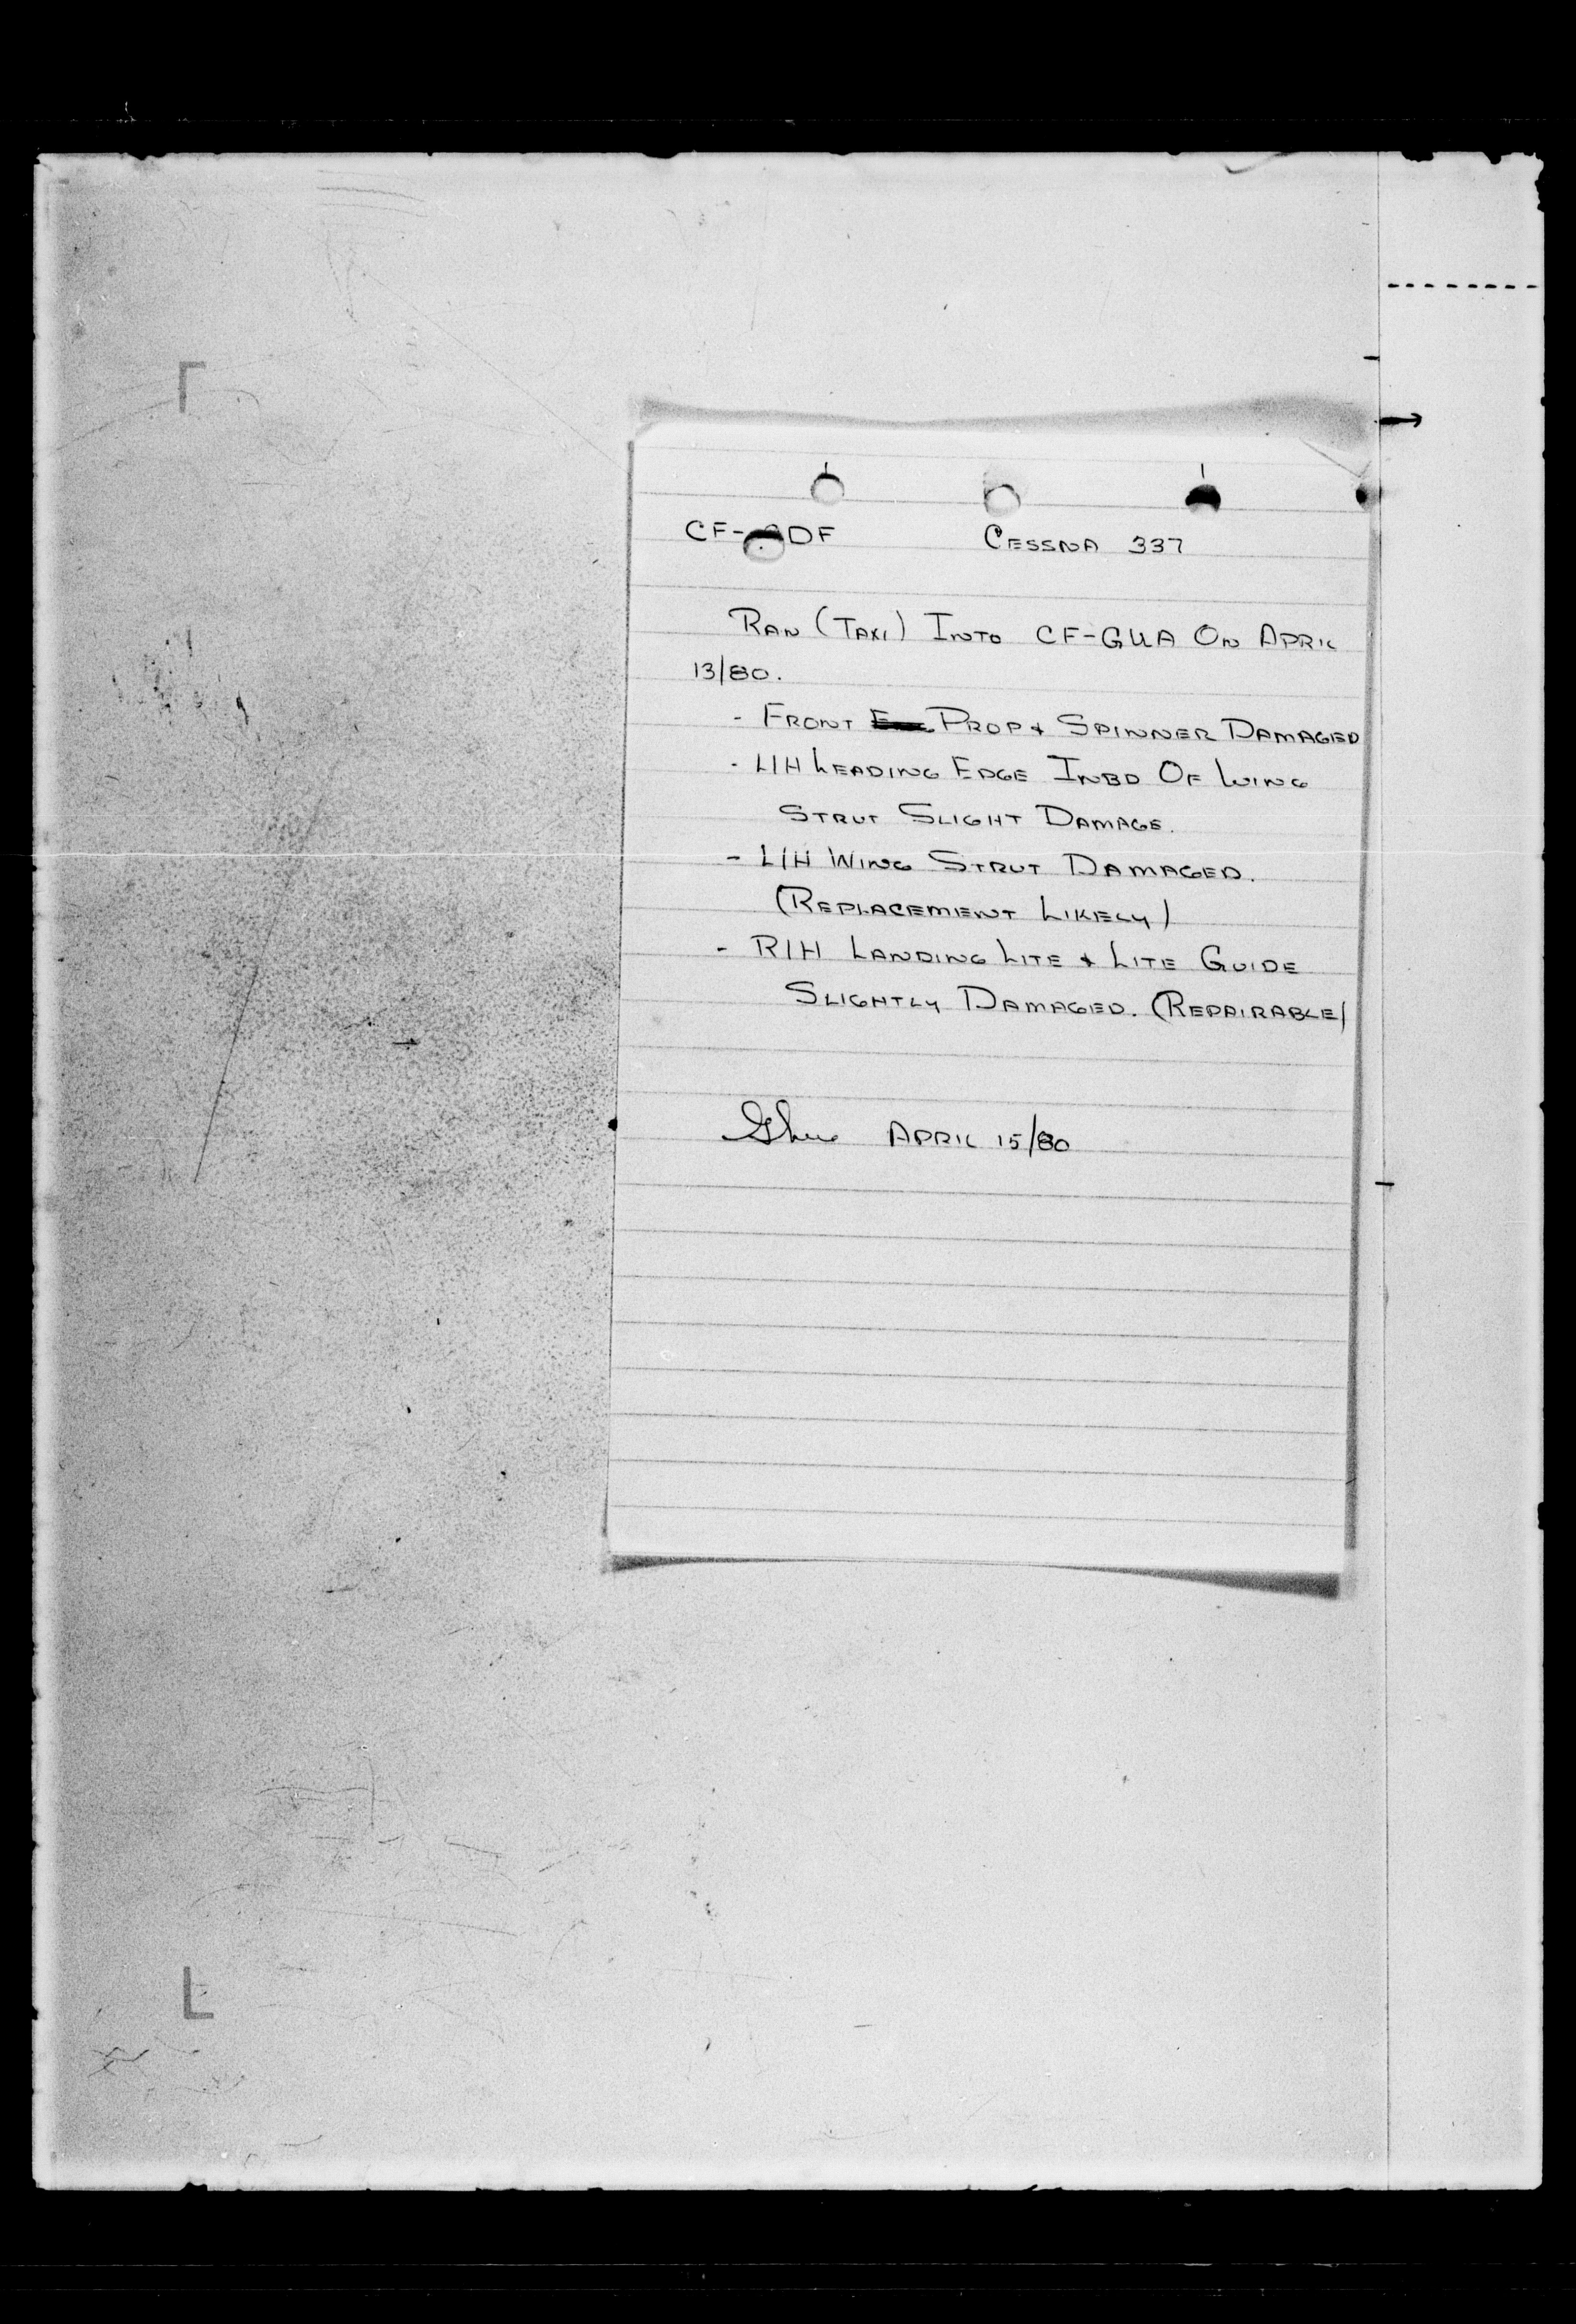 CESSNA 337
RAN (TAXI) INTO CF-GUA ON APRIL
13/80.
- FRONT PROP & SPINNER DAMAGED
- L/H LEADING EDGE INBD OF WING
STRUT SLIGHT DAMAGE.
- L/H WING STRUT DAMAGED.
(REPLACEMENT LIKELY)
- R/H LANDING LITE & LITE GUIDE
SLIGHTLY DAMAGED. (REPAIRABLE)
APRIL 15/80